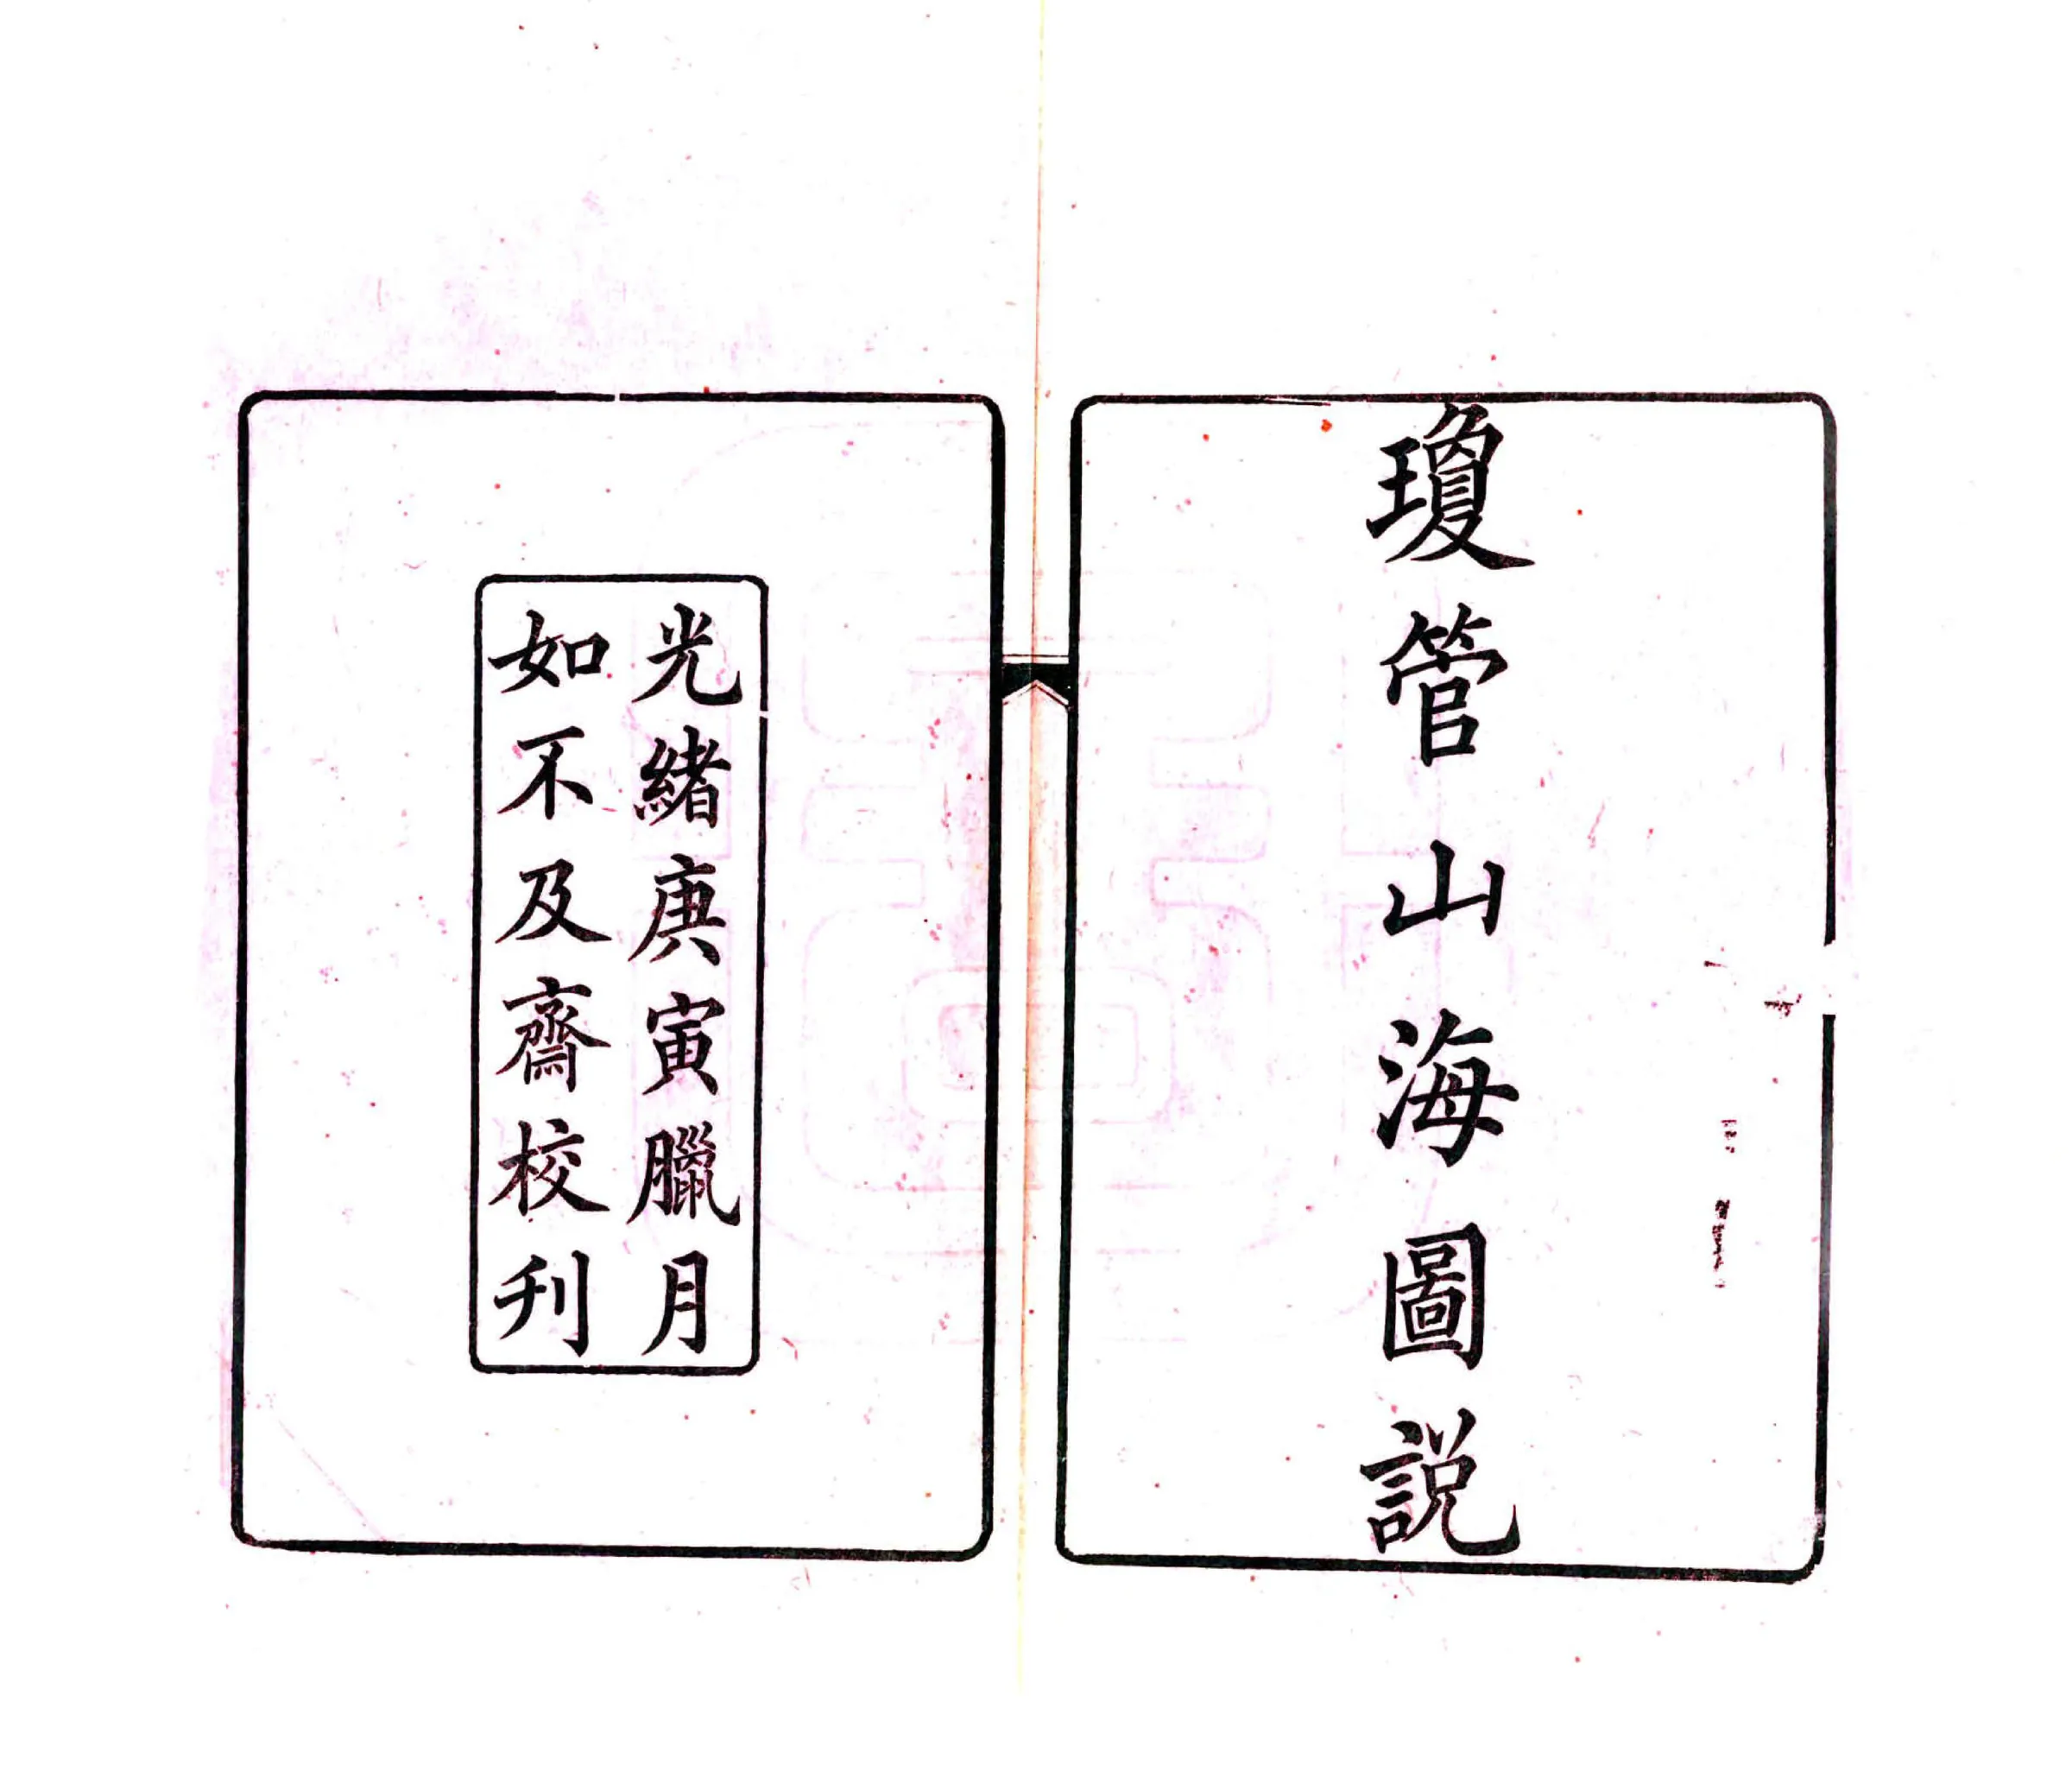 瓊管山海圖説
光緒庚寅臘月
如不及齋校刊